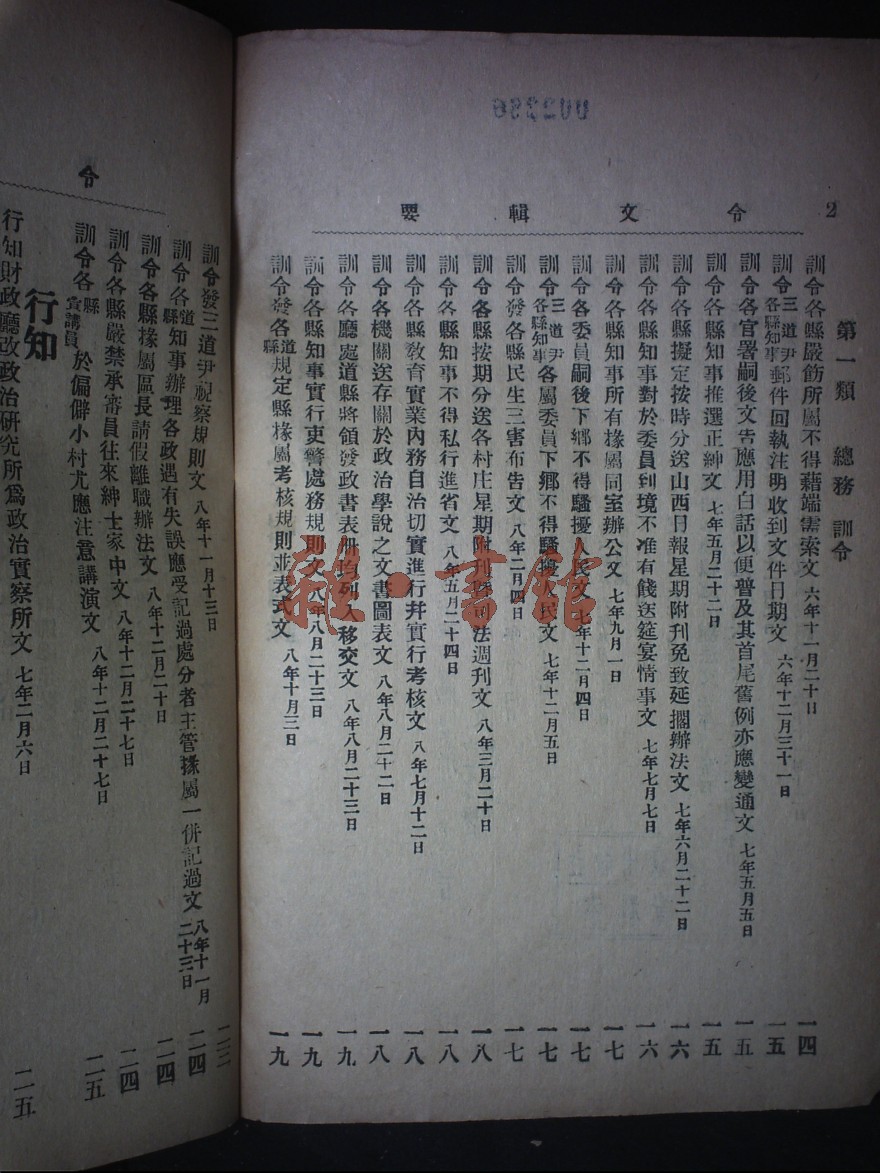 2
令文輯要
第一類 總務 訓令
訓令各縣嚴飭所屬不得藉端需索文 六年十一月二十日 一四
訓令三道尹各縣知事郵件回執注明收到文件日期文 六年十二月三十一日 一五
訓令各官署嗣後文告應用白話以便普及其首尾舊例亦應變通文 七年五月五日 一五
訓令各縣知事推選正紳文 七年五月二十二日 一五
訓令各縣擬定按時分送山西日報星期附刊免致延擱辦法文 七年六月二十二日 一六
訓令各縣知事對於委員到境不准有餞送筵宴情事文 七年七月七日 一六
訓令各縣知事所有掾屬同室辦公文 七年九月一日 一七
訓令各委員嗣後下鄉不得騷擾人民文 七年十二月四日 一七
訓令三道尹各縣知事各屬委員下鄉不得騷擾人民文 七年十二月五日 一七
訓令發各縣民生三害布告文 八年二月四日 一七
訓令各縣按期分送各村庄星期附刊暨司法週刊文 八年三月二十日 一八
訓令各縣知事不得私行進省文 八年五月二十四日 一八
訓令各縣教育實業內務自治切實進行并實行考核文 八年七月十二日 一八
訓令各機關送存關於政治學說之文書圖表文 八年八月二十二日 一八
訓令各廳處道縣將領發政書表册均列移交文 八年八月二十三日 一九
訓令各縣知事實行吏警處務規則文 八年八月二十三日 一九
訓令發各道縣規定縣掾屬考核規則並表式文 八年十月三日 一九
雜·書館
令
訓令發三道尹視察規則文 八年十一月十三日 二三
訓令各道縣知事辦理各政遇有失誤應受記過處分者主管掾屬一併記過文 八年十一月二十三日 二四
訓令各縣掾屬區長請假離職辦法文 八年十二月二十日 二四
訓令各縣嚴禁承審員往來紳士家中文 八年十二月二十七日 二四
訓令各縣宣講員於偏僻小村尤應注意講演文 八年十二月二十七日 二五
行知
行知財政廳改政治研究所爲政治實察所文 七年二月六日 二五